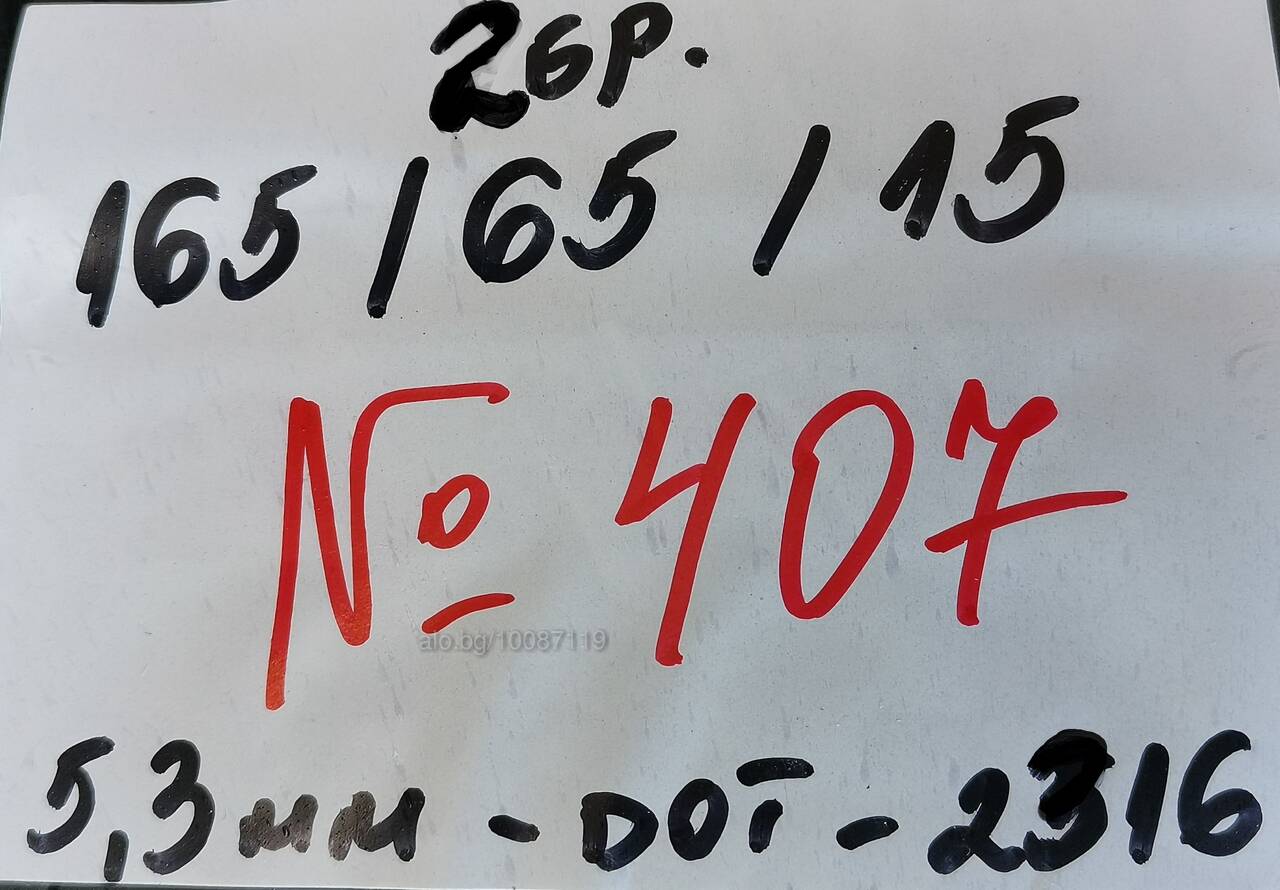 2бр.
165/65/15
№ 407
alo.bg/10087119
5,3мм - DOT - 2316